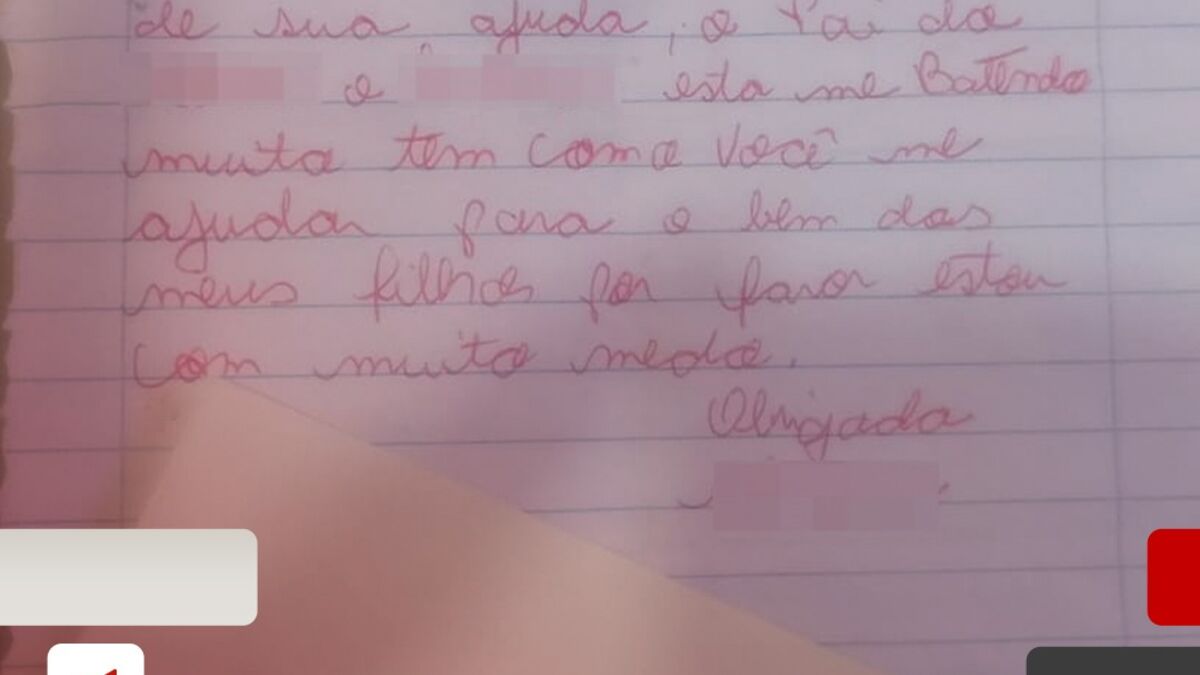 de sua ajuda, o Pai da
e esta me Batendo
muito tem como você me
ajudar para o bem dos
meus filhos por favor estou
com muito medo.
Obrigada